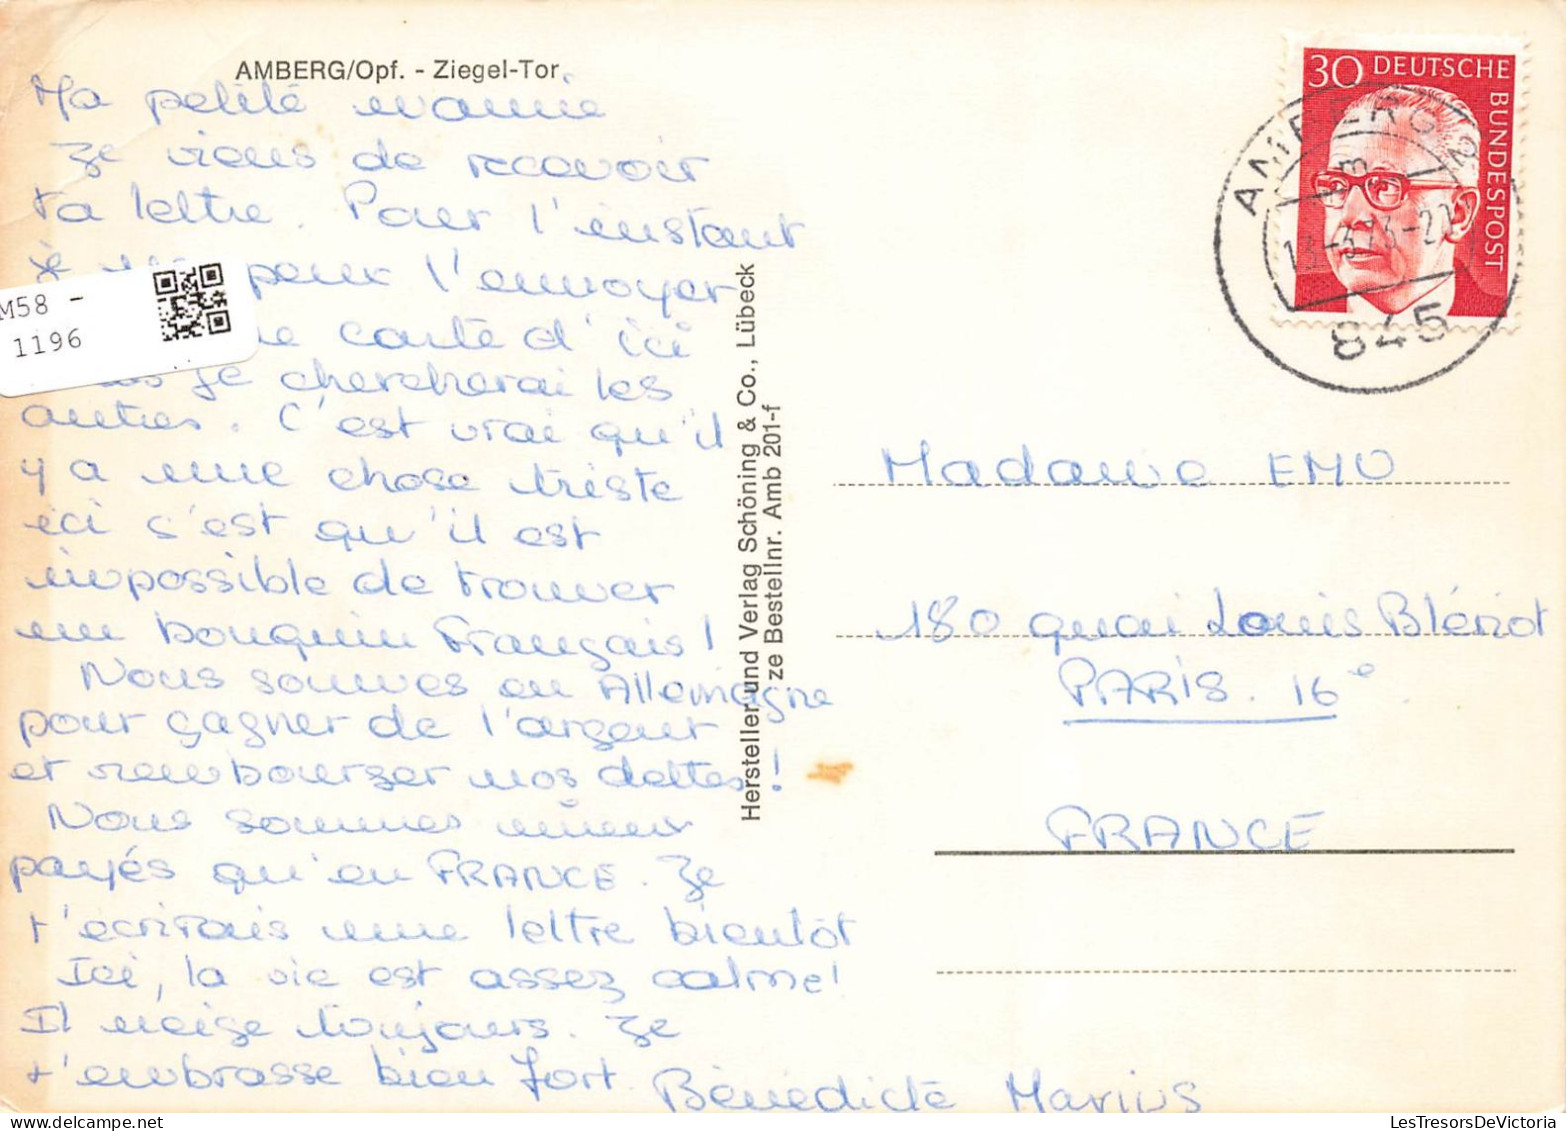 AMBERG/Opf. - Ziegel-Tor
Ma petite mamie
Je viens de recevoir
ta lettre. Pour l'instant
je peux l'envoyer
carte d'ici
je chercherai les
autres. C'est vrai qu'il
y a une chose triste
ici c'est qu'il est
impossible de trouver
un bouquin Français!
Nous sommes en Allemagne
pour gagner de l'argent
et rembourser nos dettes!
Nous sommes mieux
payés qu'en FRANCE. Je
t'écrirais une lettre bientôt
Ici, la vie est assez calme!
Il neige toujours. Je
t'embrasse bien fort.
Bénédicte Marius
M58 -
1196
Hersteller und Verlag Schöning & Co., Lübeck
ze Bestellnr. Amb 201-f
30 DEUTSCHE BUNDESPOST
AMBERG 2
13-3.73-
845
Madame EMO
180 quai Louis Blériot
PARIS. 16e
FRANCE
LesTresorsDeVictoria